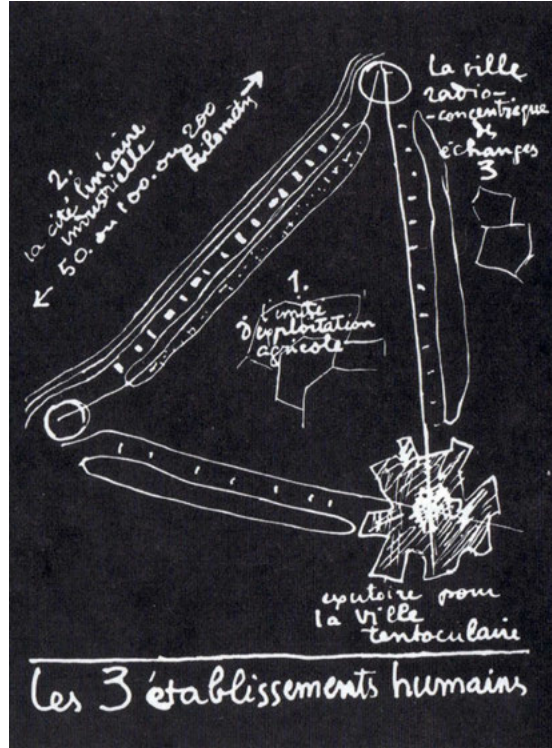 2.
la cité linéaire
industrielle
50. ou 100. ou 200
kilometres
la ville
radio-
-concentrique
des
échanges
3
1.
l'unité
d'exploitation
agricole
exutoire pour
la ville
tentaculaire
Les 3 établissements humains